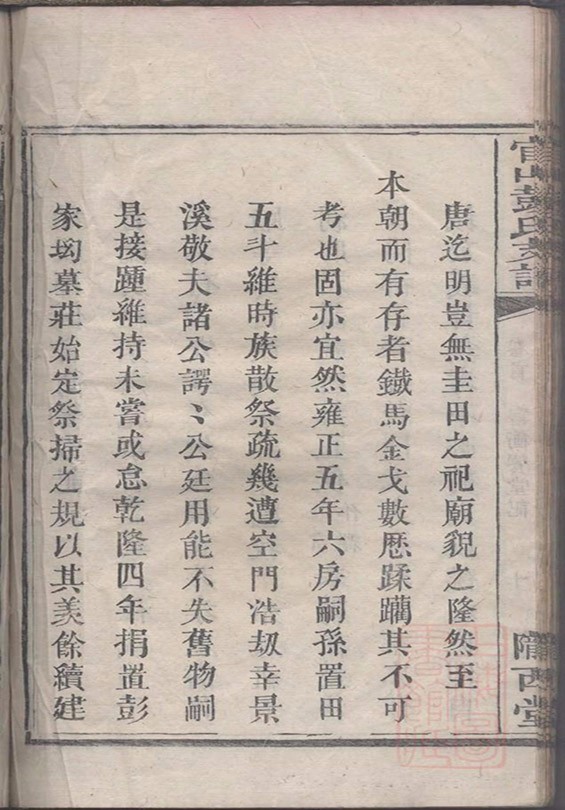 彭氏支譜
隴西堂
唐迄明豈無圭田之祀廟貌之隆然至
本朝而有存者鐵馬金戈數厯蹂躪其不可
考也固亦宜然雍正五年六房嗣孫置田
五斗維時族散祭疏幾遭空門浩刼幸景
溪敬夫諸公諤〻公廷用能不失舊物嗣
是接踵維持未嘗或怠乾隆四年捐置彭
家坳墓莊始定祭掃之規以其羙餘續建